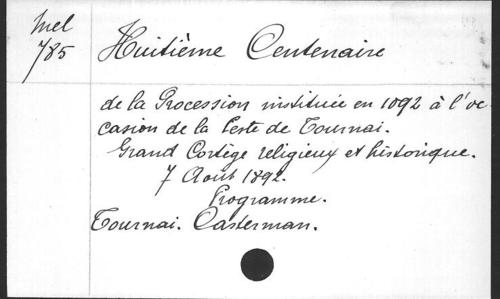 Mel
785
Huitième Centenaire
de la Procession instituée en 1092 à l'oc
casion de la Peste de Tournai.
Grand Cortège religieux et historique.
7 Août 1892.
Programme.
Tournai. Casterman.